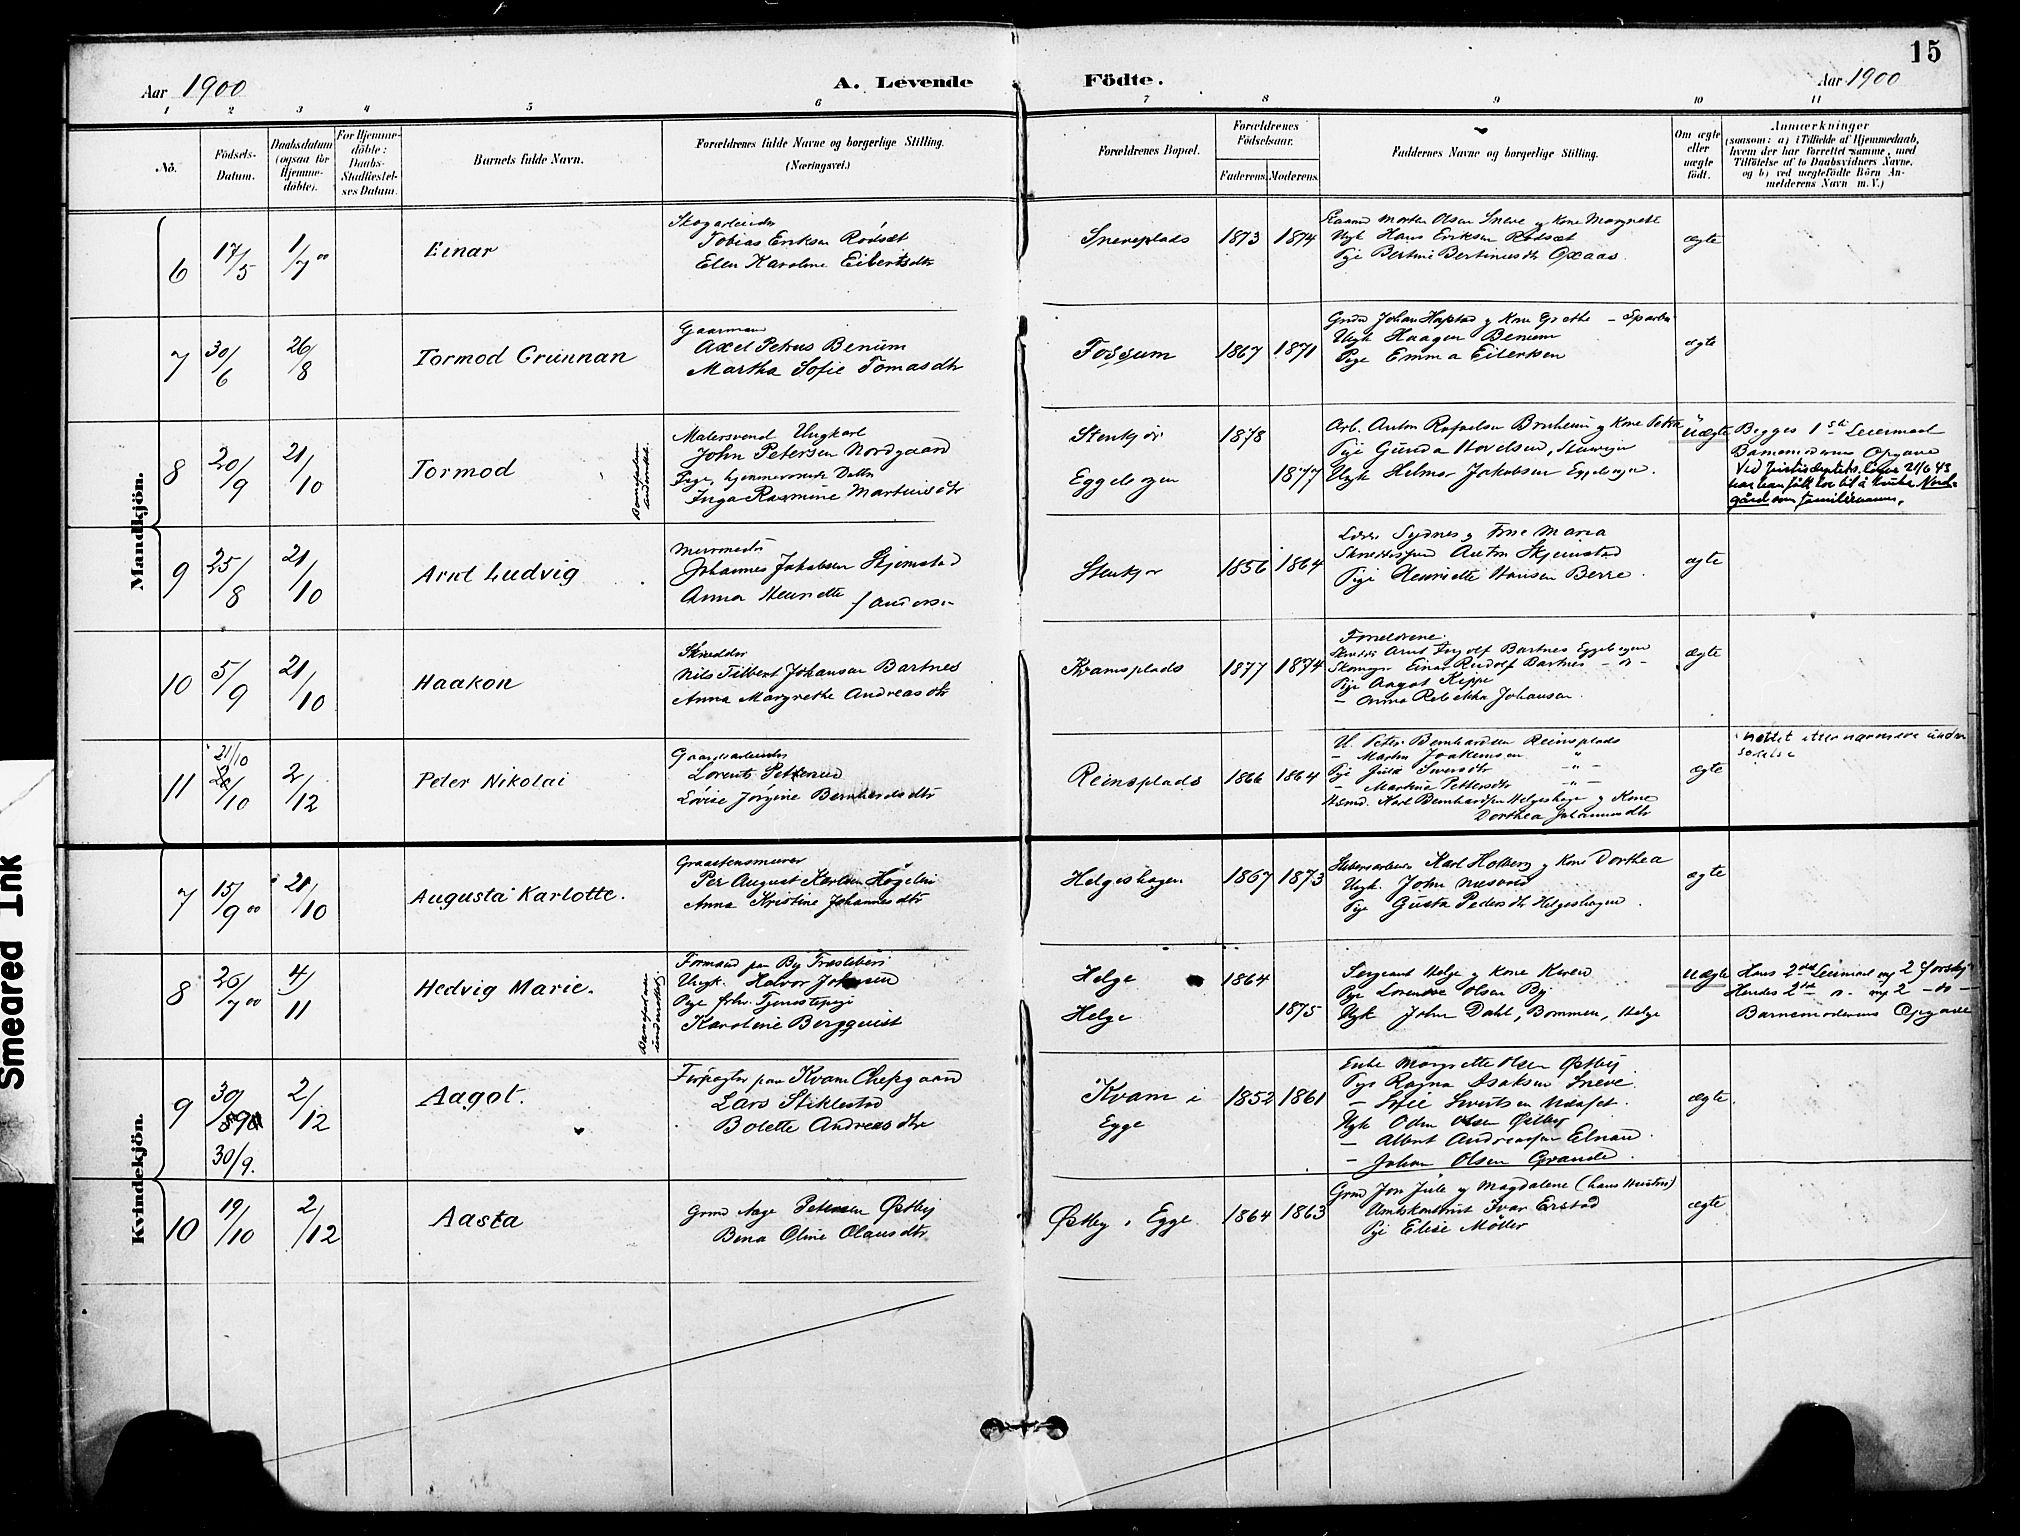 15
Aar 1900
A. Levende Födte.
Aar 1900
1 2 3 4 5 6 7 8 9 10 11
No.
Födsels-Datum.
Daabsdatum (ogsaa för Hjemme-döbte).
For Hjemme-döbte: Daabs-Stadfæstel-ses Datum.
Barnets fulde Navn.
Forældrenes fulde Navne og borgerlige Stilling.
(Næringsvei.)
Forældrenes Bopæl.
Forældrenes Födselsaar.
Faderens. Moderens.
Faddernes Navne og borgerlige Stilling.
Om ægte eller uægte födt.
Anmærkninger
(saasom: a) i Tilfælde af Hjemmedaab, hvem der har forrettet samme, med Tilföielse af to Daabsvidners Navne, og b) ved uægtefödte Börn An-melderens Navn m. V.)
Mandkjön.
6 17/5 1/7 00 Einar
Tobias Eriksen Rödsæt
Elen Karoline Eibertsdtr
Sneveplads 1873 1874
Morten Olsen Sneve og Kone Margrethe
Ungk Hans Eriksen Rødsæt
Pige Bertine Bertinusdtr Oxaas.
ægte
7 30/6 26/8 Tormod Grunnan
Gaarmand
Axel Petrus Benum
Martha Sofie Tomasdtr
Fossum 1867 1871
Johan Hapstad og Kone Grethe - Sparbu
Ungk Haagen Benum
Pige Emma Eilertsen
ægte
8 20/9 21/10 Tormod
Barnefaderen underrettet.
Malersvend Ungkarl
John Petersen Nordgaard
Pige, hjemmeværende Datter
Inga Rasmine Martinsdtr
Stenkjær 1878
Eggebogen 1877
Arb. Anton Rafaelsen Bruheim og Kone Petra
Pige Gunda Hovelsen, Stenkjær
Ungk Helmer Jakobsen Eggebogen.
Uægte
Begges 1ste Leiermaal
Barnemoderens Opgave
Ved Justisdeptets. bev 21/6 43
har han fått lov til å bruke Nord-
gård som familienavn.
9 25/8 21/10 Arnt Ludvig
Murmester
Johannes Jakobsen Skjemstad
Anna Henriette f. Anders.
Stenkjær 1856 1864
Sydnes og Frue Maria
Anton Skjemstad
Pige Henriette Hansen Berre.
ægte
10 5/9 21/10 Haakon
Skrædder
Nils Tilbert Johansen Bartnes
Anna Margrethe Andreasdtr
Kvamsplads 1877 1874
Forældrene.
Arnt Ingolf Bartnes Eggebogen
Einar Rudolf Bartnes - " -
Pige Aagot Kippe
- Anna Rebekka Johansen.
ægte
11 21/10 2/12 Peter Nikolai
Gaardarbeider
Lorents Petternud
Lovise Jörgine Bernhardsdtr
Reinsplads 1866 1864
U. Peter Bernhardsen Reinsplads
- Martin Joakimsen "
Pige Julie Sivertsdtr - " -
- Martine Pettersdtr
Husmd. Karl Bernhardsen Helgeshage og Kone
Dorthea Johannesdtr
ægte
rettet etter nærmere under
søkelse
Kvindekjön.
7 15/9 00 21/10 Augusta Karlotte.
Graastensmurer
Per August Karlsen Högelin
Anna Kristine Johannesdtr
Helgeshagen 1867 1873
Karl Holberg og Kone Dorthea
Ungk. John
Pige Gusta Pedersdtr Helgeshagen.
ægte
8 26/7 00 4/11 Hedvig Marie.
Barnefaderen underrettet.
Formand paa By Træsleberi
Ungk. Halvor Johnsen
Pige frhv. Tjenestepige
Karoline Bergquist
Helge 1864
Helge 1875
Sergeant Helge og Kone Karen
Pige Lorense Olsen By
Ungk John Dahl, Bommen, Helge
Uægte
Hans 2det Leiermaal m 2 forskj.
Hendes 2det - " - m 2 - " -
Barnemoderens Opgave
9 30/9 2/12 Aagot.
30/9.
Forpagter paa Kvam Chefgaard
Lars Stiklestad
Bolette Andreasdtr
Kvam i Egge 1852 1861
Enke Margrette Olsen Østby
Pige Ragna Isaksen Sneve.
- Sofie Sivertsen
Ungk Oden Olsen Østby
- Albert Andreassen Elnan.
- Johan Olsen Grande.
ægte.
10 19/10 2/12 Aasta
Grmd Aage Petersen Østby
Bena Oline Olausdtr
Østby i Egge 1864 1863
Grmd Jon Jule og Magdalene (hans Hustru)
Amtskontorist Ivar Erstad
Pige Elise Möller
ægte
Smeared Ink